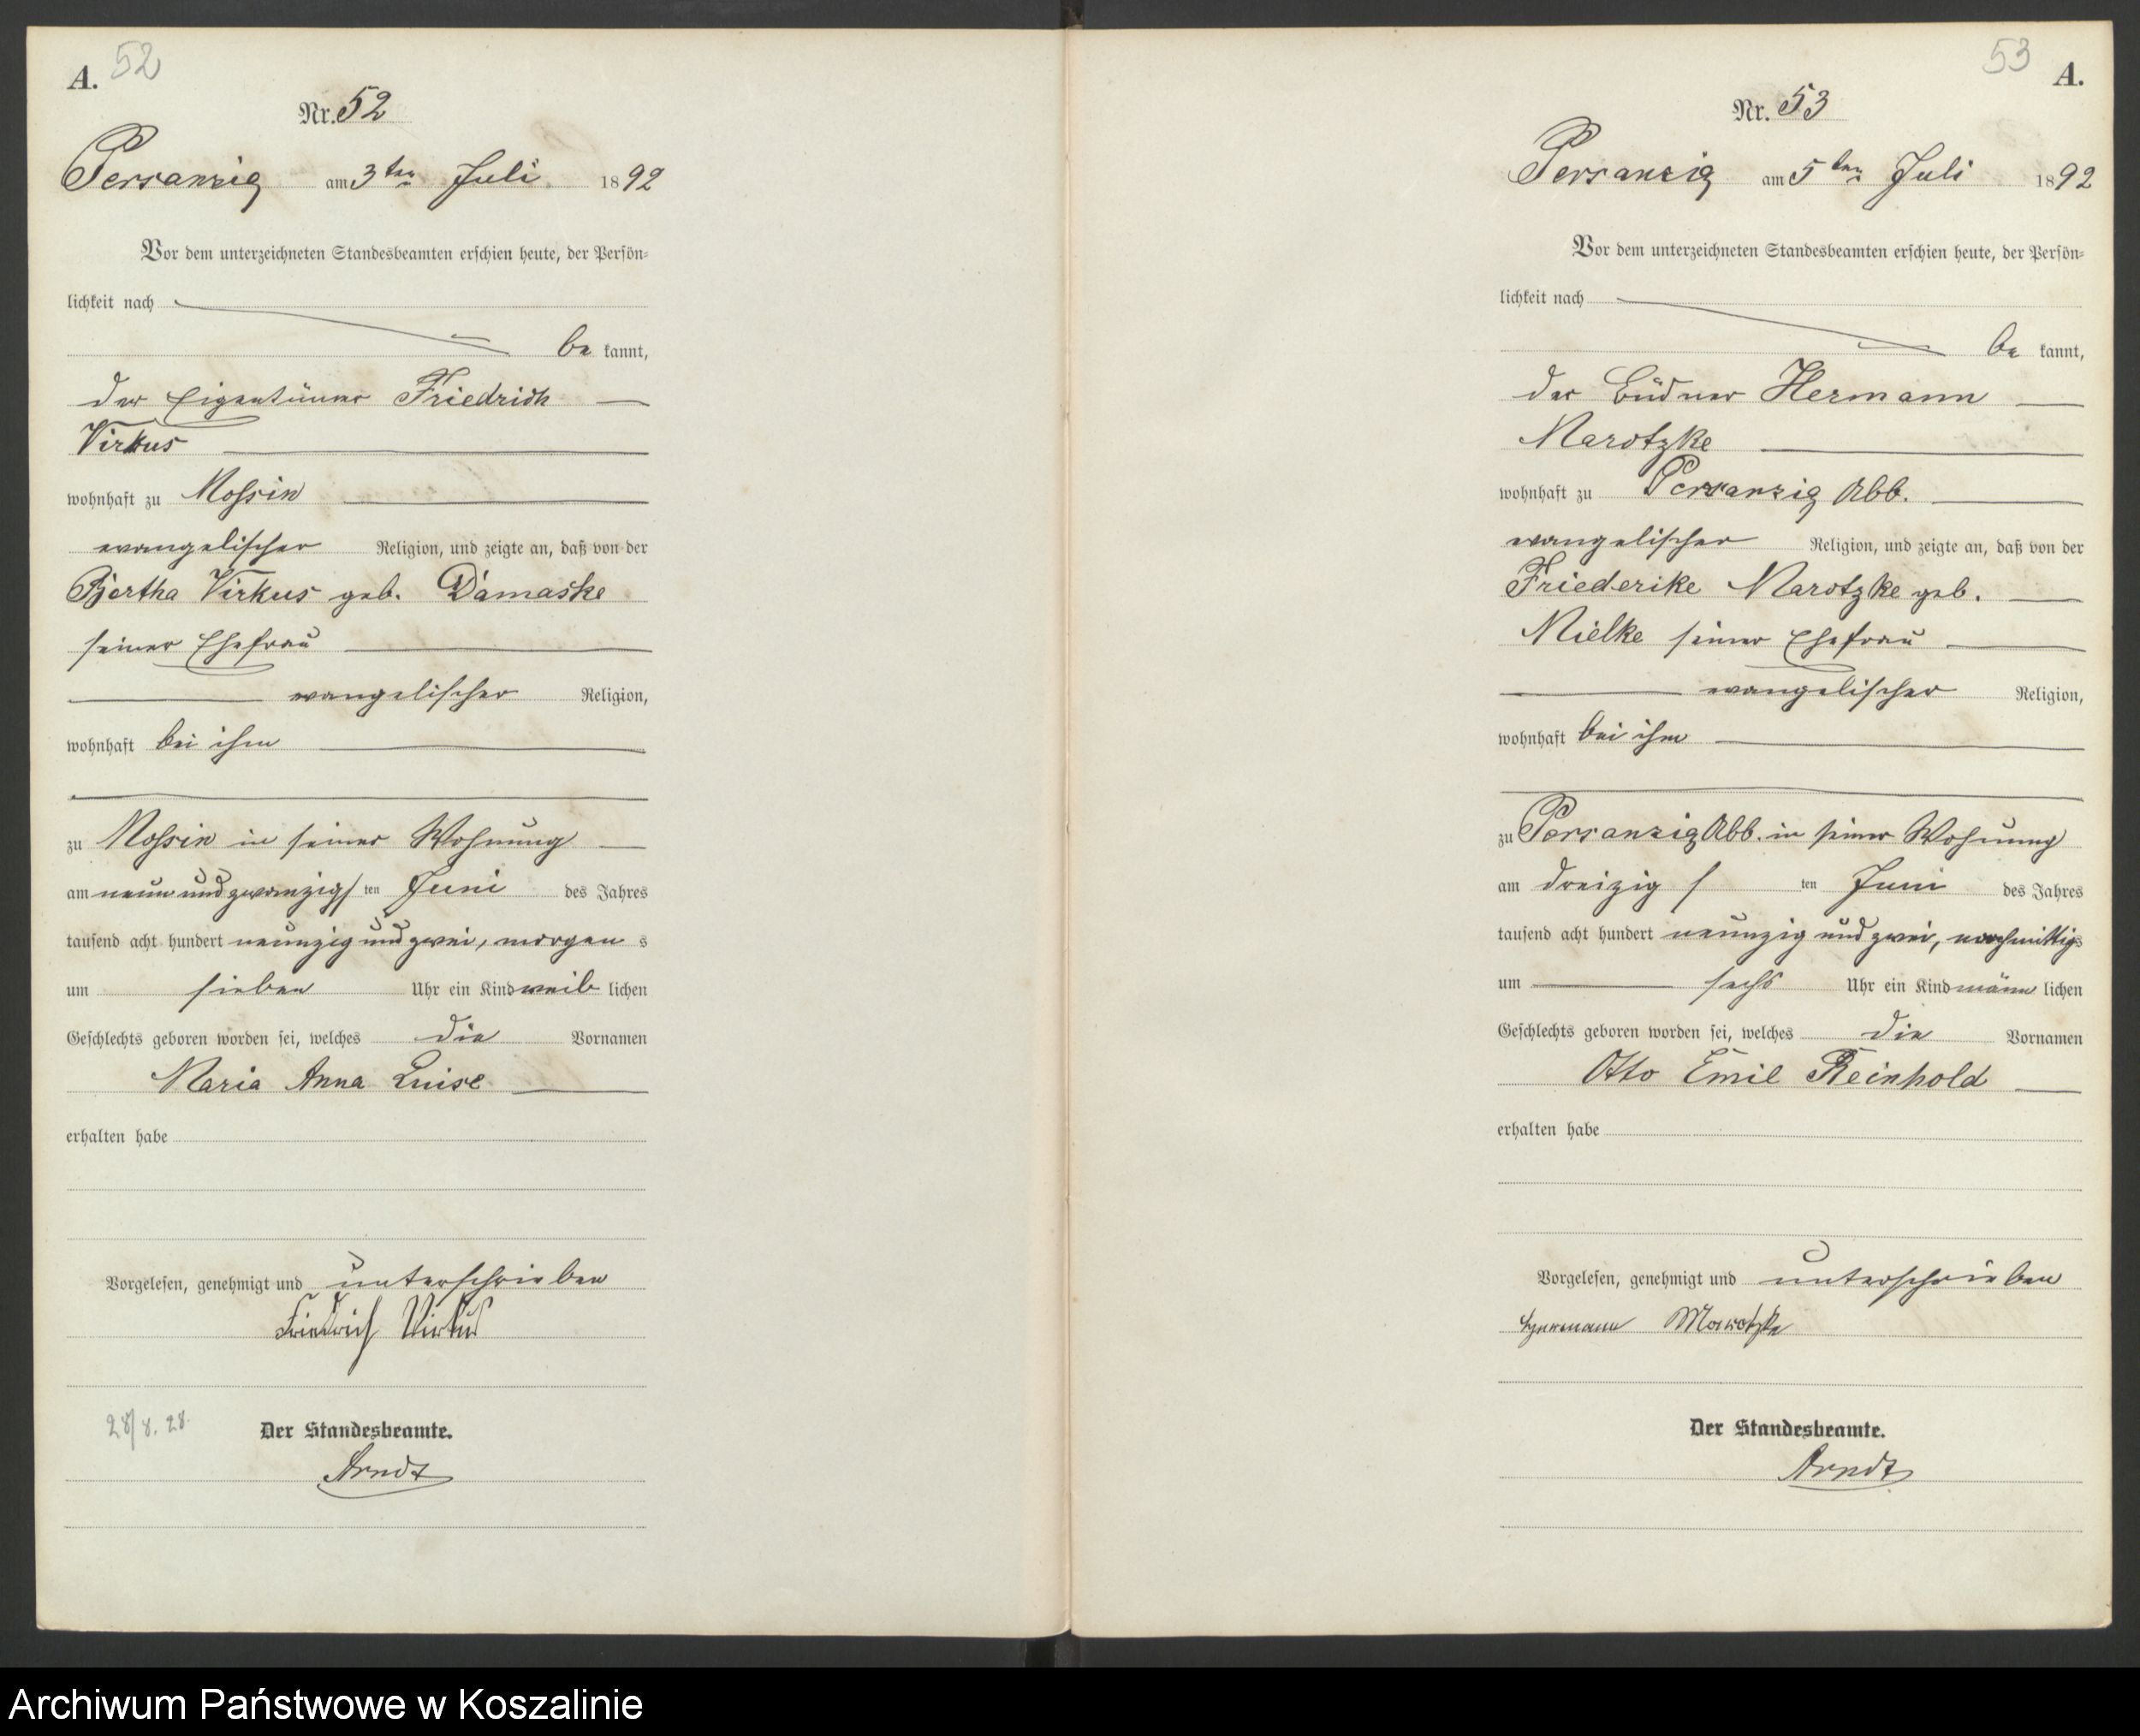 A. 52
Nr. 52
Persanzig am 3ten Juli 1892
Vor dem unterzeichneten Standesbeamten erschien heute, der Persön-
lichkeit nach
be kannt,
der Eigentümer Friedrich
Virkus
wohnhaft zu Mossin
evangelischer Religion, und zeigte an, daß von der
Bertha Virkus geb. Damaske
seiner Ehefrau
evangelischer Religion,
wohnhaft bei ihm
zu Mossin in seiner Wohnung
am neun und zwanzigsten Juni des Jahres
tausend acht hundert neunzig und zwei, morgens
um sieben Uhr ein Kind weiblichen
Geschlechts geboren worden sei, welches die Vornamen
Maria Anna Luise
erhalten habe
Vorgelesen, genehmigt und unterschrieben
Friedrich Virkus
28/8. 28.
Der Standesbeamte.
Arndt
53 A.
Nr. 53
Persanzig am 5ten Juli 1892
Vor dem unterzeichneten Standesbeamten erschien heute, der Persön-
lichkeit nach
be kannt,
der Büdner Hermann
Marotzke
wohnhaft zu Persanzig Abb.
evangelischer Religion, und zeigte an, daß von der
Friederike Marotzke geb.
Mielke seiner Ehefrau
evangelischer Religion,
wohnhaft bei ihm
zu Persanzig Abb. in seiner Wohnung
am dreizigsten Juni des Jahres
tausend acht hundert neunzig und zwei, nachmittags
um sechs Uhr ein Kind männlichen
Geschlechts geboren worden sei, welches die Vornamen
Otto Emil Reinhold
erhalten habe
Vorgelesen, genehmigt und unterschrieben
Hermann Marotzke
Der Standesbeamte.
Arndt
Archiwum Państwowe w Koszalinie